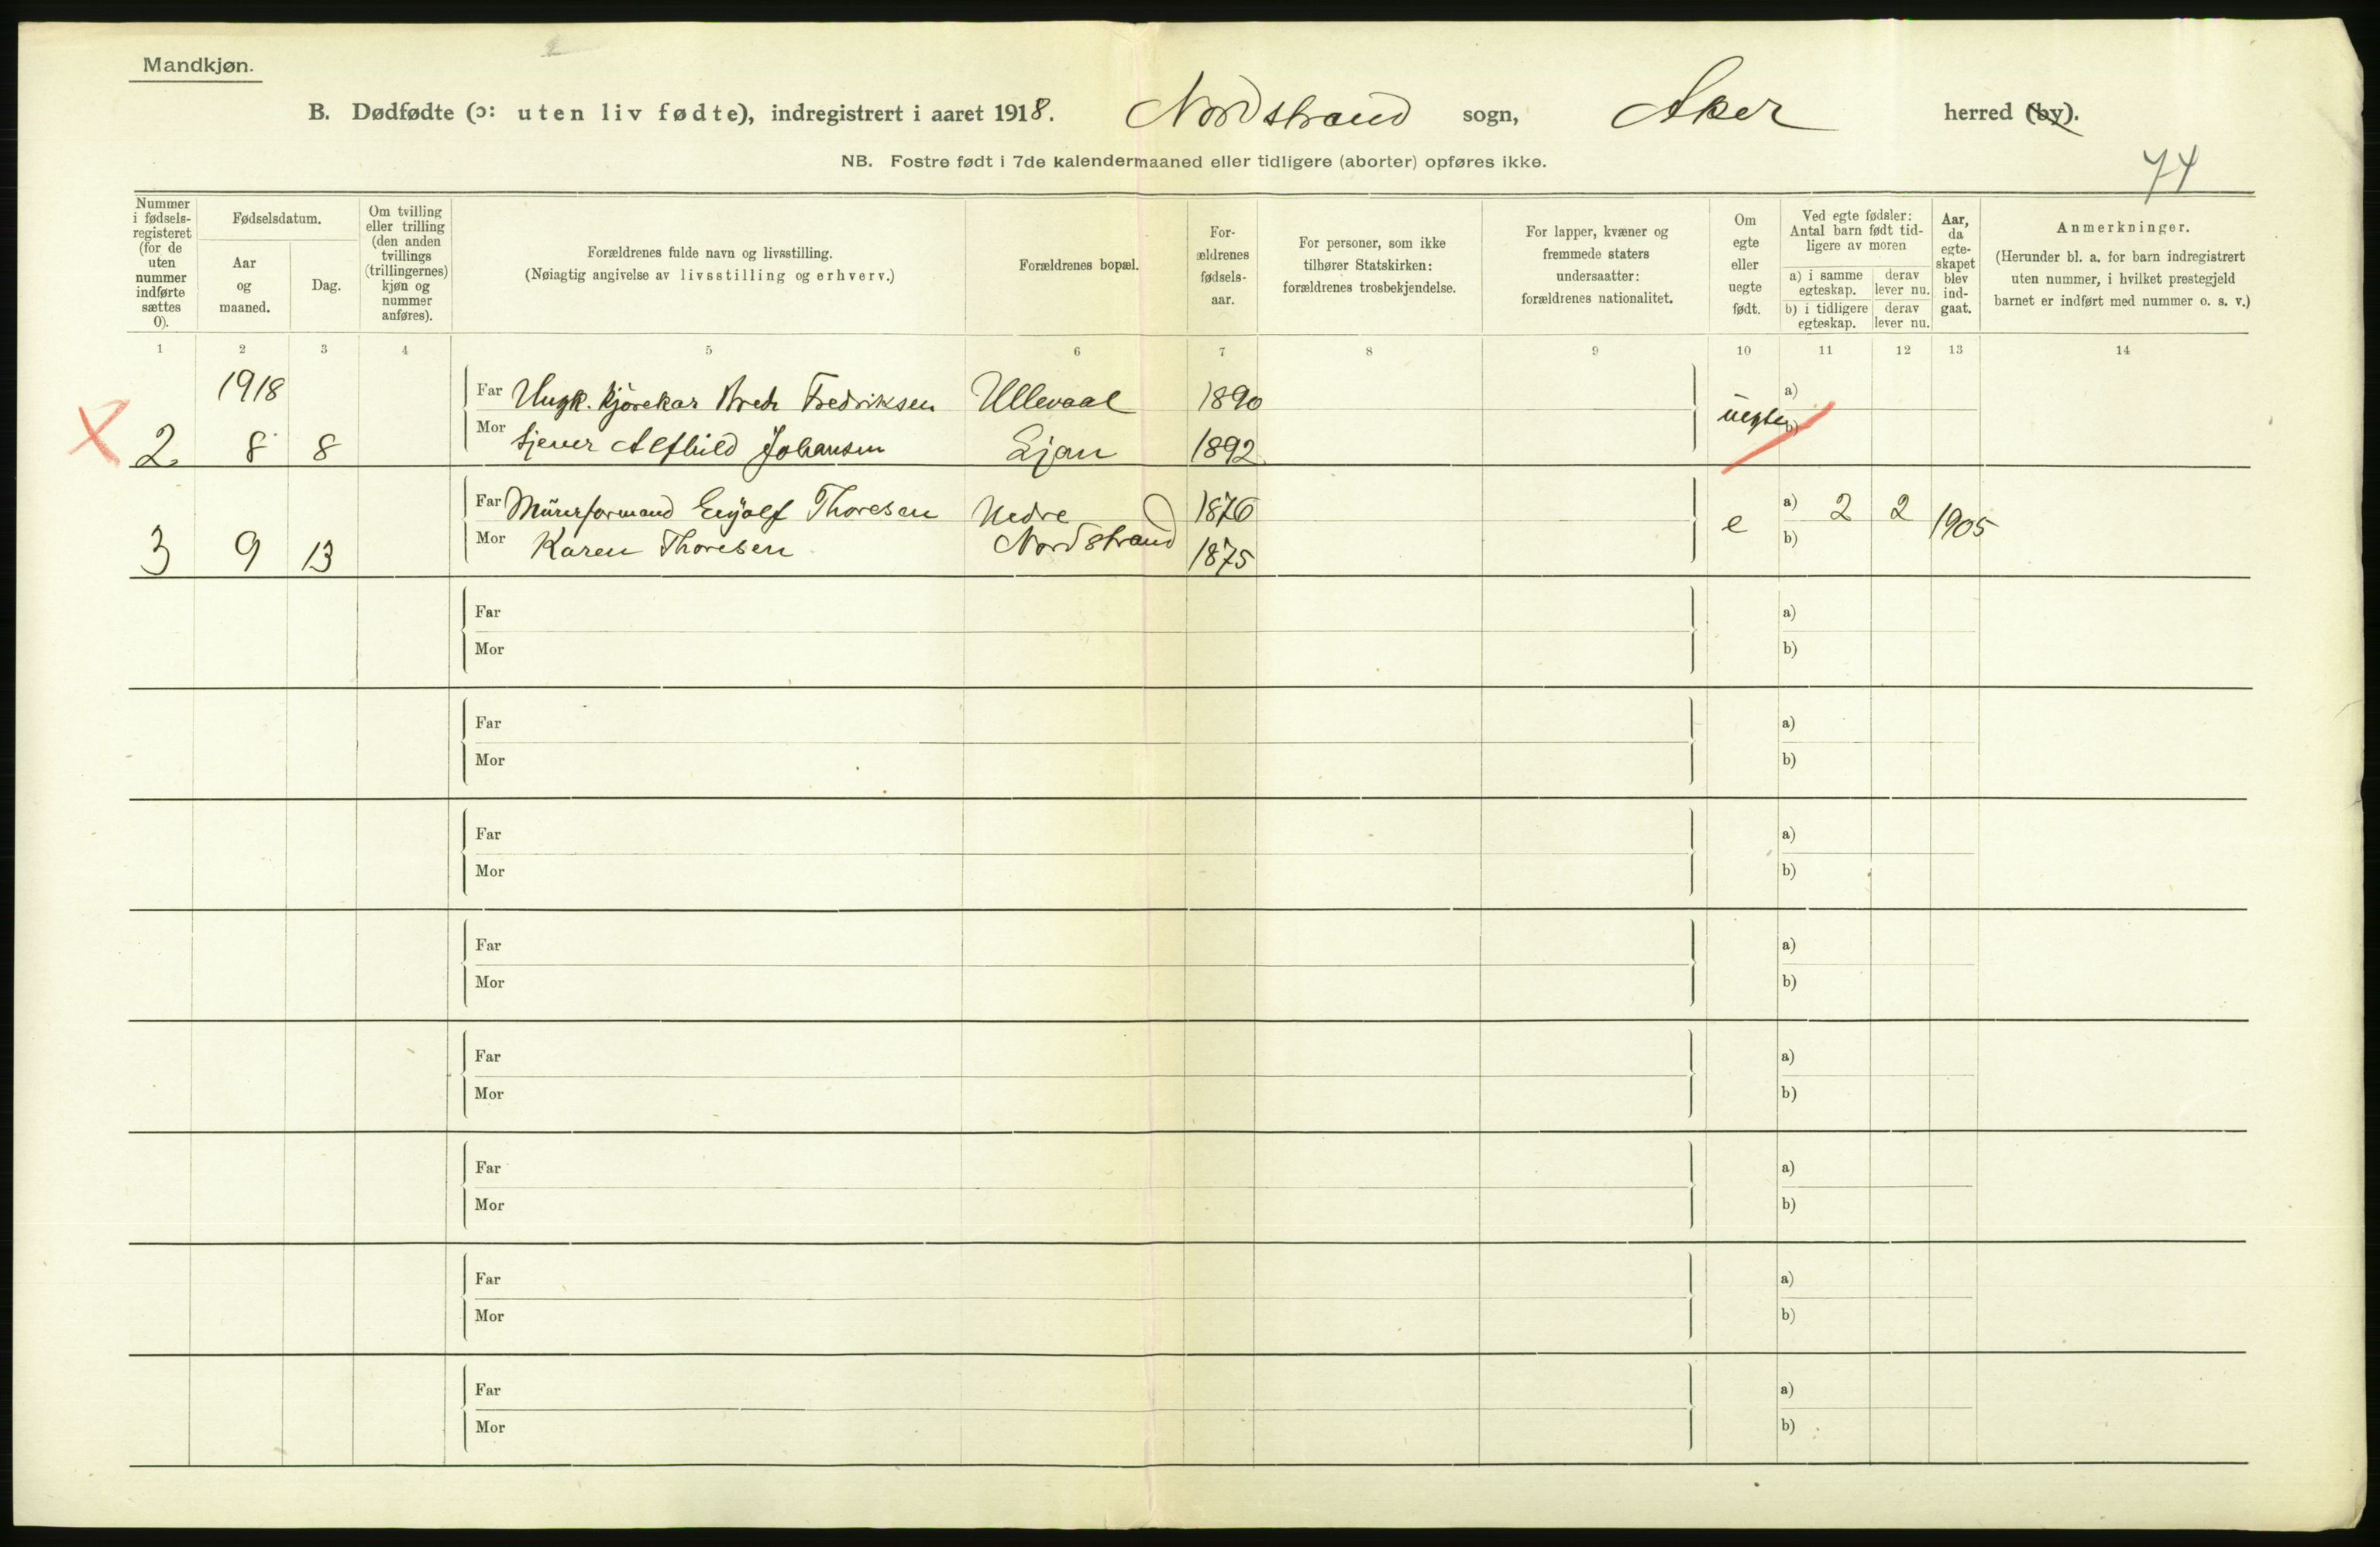 Mandkjøn.
B. Dødfødte (ɔ: uten liv fødte), indregistrert i aaret 1918. Nordstrand sogn, Aker herred (by).
NB. Fostre født i 7de kalendermaaned eller tidligere (aborter) opføres ikke.
74
Nummer i fødsels-registeret (for de uten nummer indførte sættes 0).
Fødselsdatum.
Aar og maaned.
Dag.
Om tvilling eller trilling (den anden tvillings (trillingernes) kjøn og nummer anføres).
Forældrenes fulde navn og livsstilling.
(Nøiagtig angivelse av livsstilling og erhverv.)
Forældrenes bopæl.
For-ældrenes fødsels-aar.
For personer, som ikke tilhører Statskirken: forældrenes trosbekjendelse.
For lapper, kvæner og fremmede staters undersaatter: forældrenes nationalitet.
Om egte eller uegte født.
Ved egte fødsler: Antal barn født tid-ligere av moren
a) i samme egteskap.
derav lever nu.
b) i tidligere egteskap.
derav lever nu.
Aar, da egte-skapet blev ind-gaat.
Anmerkninger.
(Herunder bl. a. for barn indregistrert uten nummer, i hvilket prestegjeld barnet er indført med nummer o. s. v.)
1 2 3 4 5 6 7 8 9 10 11 12 13 14
1918
Far Ungk. kjørekar Fredriksen Ullevaal 1890 uegte a)
2 8 8 Mor tjener Alfhild Johansen Ljan 1892 b)
Far Murerformand Eyolf Thoresen Nedre 1876 e a) 2 2 1905
3 9 13 Mor Karen Thoresen Nordstrand 1875 b)
Far a)
Mor b)
Far a)
Mor b)
Far a)
Mor b)
Far a)
Mor b)
Far a)
Mor b)
Far a)
Mor b)
Far a)
Mor b)
Far a)
Mor b)